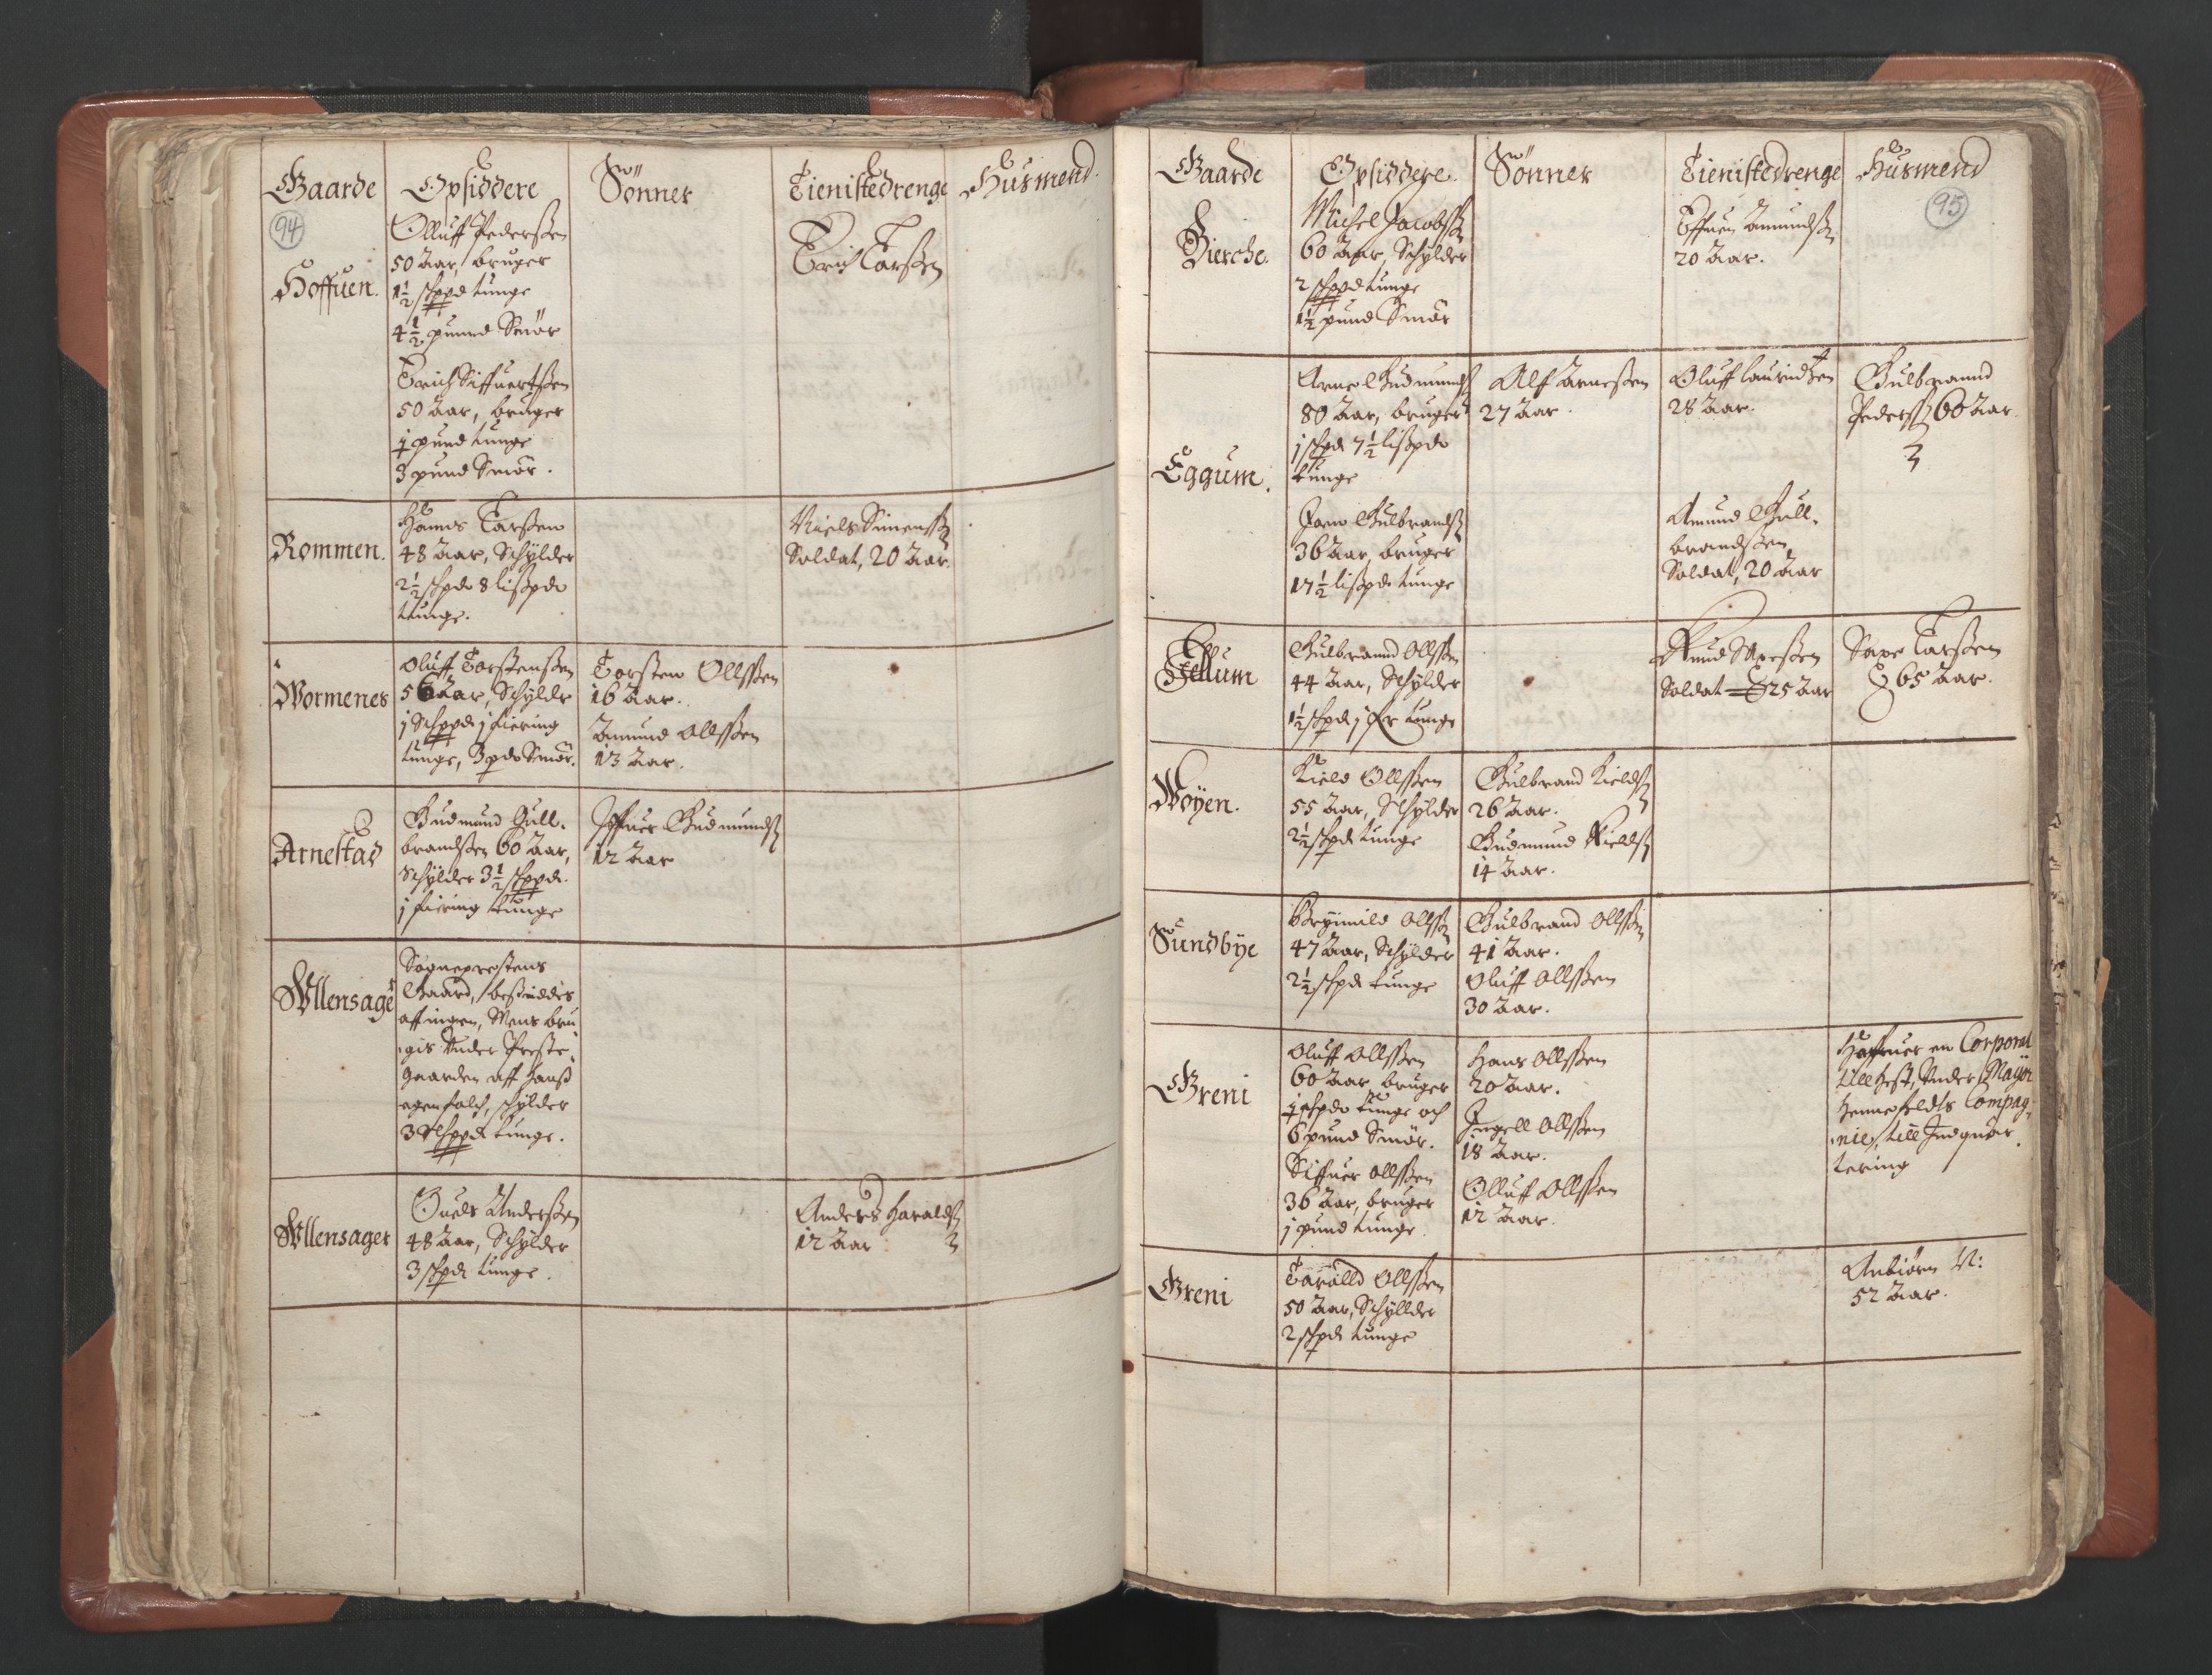 Gaarde Opsiddere Sönner Tienistedrenge Husmend.
94
Hoffuen.
Olluff Pederßen
50 Aar, bruger
1½ schppd tunge
4½ pund Smör
Erich Siffuertßen
50 Aar, bruger
1 pund tunge
3 pund Smör.
Erich Larßen
Rommen.
Hanns Larßen
48 Aar, Schylder
2½ schpd 8 lißpd
tunge.
Niels Simenß
Soldat, 20 Aar.
Wormenes
Oluff Torstenßen
56 Aar, Schylder
j Schppd j fiering
tunge, 3 pd Smör.
Torsten Ollßen
16 Aar.
Amund Ollßen
13 Aar.
Arnestad
Gudmund Gull-
brandßen 60 Aar,
Schylder 3½ schppd.
j fiering tunge
Iffuer Gudmundß
12 Aar
Wllensager
Sogneprestens
Gaard, besiddes
aff ingen, Mens bru
gis Under Preste-
gaarden aff hanß
egen folch, schylder
3 Schppd tunge.
Wllensager
Anderßen
48 Aar, Schylder
3 schpd tunge.
Anders Haraldß
12 Aar
Gaarde Opsiddere. Sönner Tienistedrenge Husmend
95
Bierche.
Michel Jacobß
60 Aar, Schylder
2 schppd tunge
1½ pund Smör
Effuen Amundß
20 Aar.
Eggum.
Arne Gudmundß
80 Aar, bruger
j schpd 7½ lißpd
tunge
Alf Arneßen
27 Aar.
Oluff Lauridtzen
28 Aar.
Gulbrannd
Pederß 60 Aar.
Gulbrandß
36 Aar, bruger
17½ lißpd tunge
Amund Gull-
brandßen
Soldat, 20 Aar
Fellum
Gulbrannd Ollßen
44 Aar, Schylder
1½ schpd j fr tunge
Knud
Soldat 25 Aar
Saxe Larßen
65 Aar.
Wöyen.
Kield Ollßen
55 Aar, Schylder
2½ schpd tunge
Gulbrand Kieldß
26 Aar.
Gudmund Kieldß
14 Aar.
Sundbye
Ollß
47 Aar, Schylder
2½ schpd tunge
Gulbrand Ollßen
41 Aar.
Oluff Ollßen
30 Aar.
Greni
Oluff Ollßen
60 Aar bruger
1 schpd tunge och
6 pund Smör.
Siffuer Ollßen
36 Aar, bruger
j pund tunge.
Hans Ollßen
20 Aar.
Ingell Ollßen
18 Aar.
Olluff Ollßen
12 Aar.
Haffuer en Corporal
till hest, Under Mayor
Hennefeldts Compag-
nie, till Indquar
tering
Greni
Taralld Ollßen
50 Aar, Schyllder
2 schpd tunge
Anbiörn N:
52 Aar.